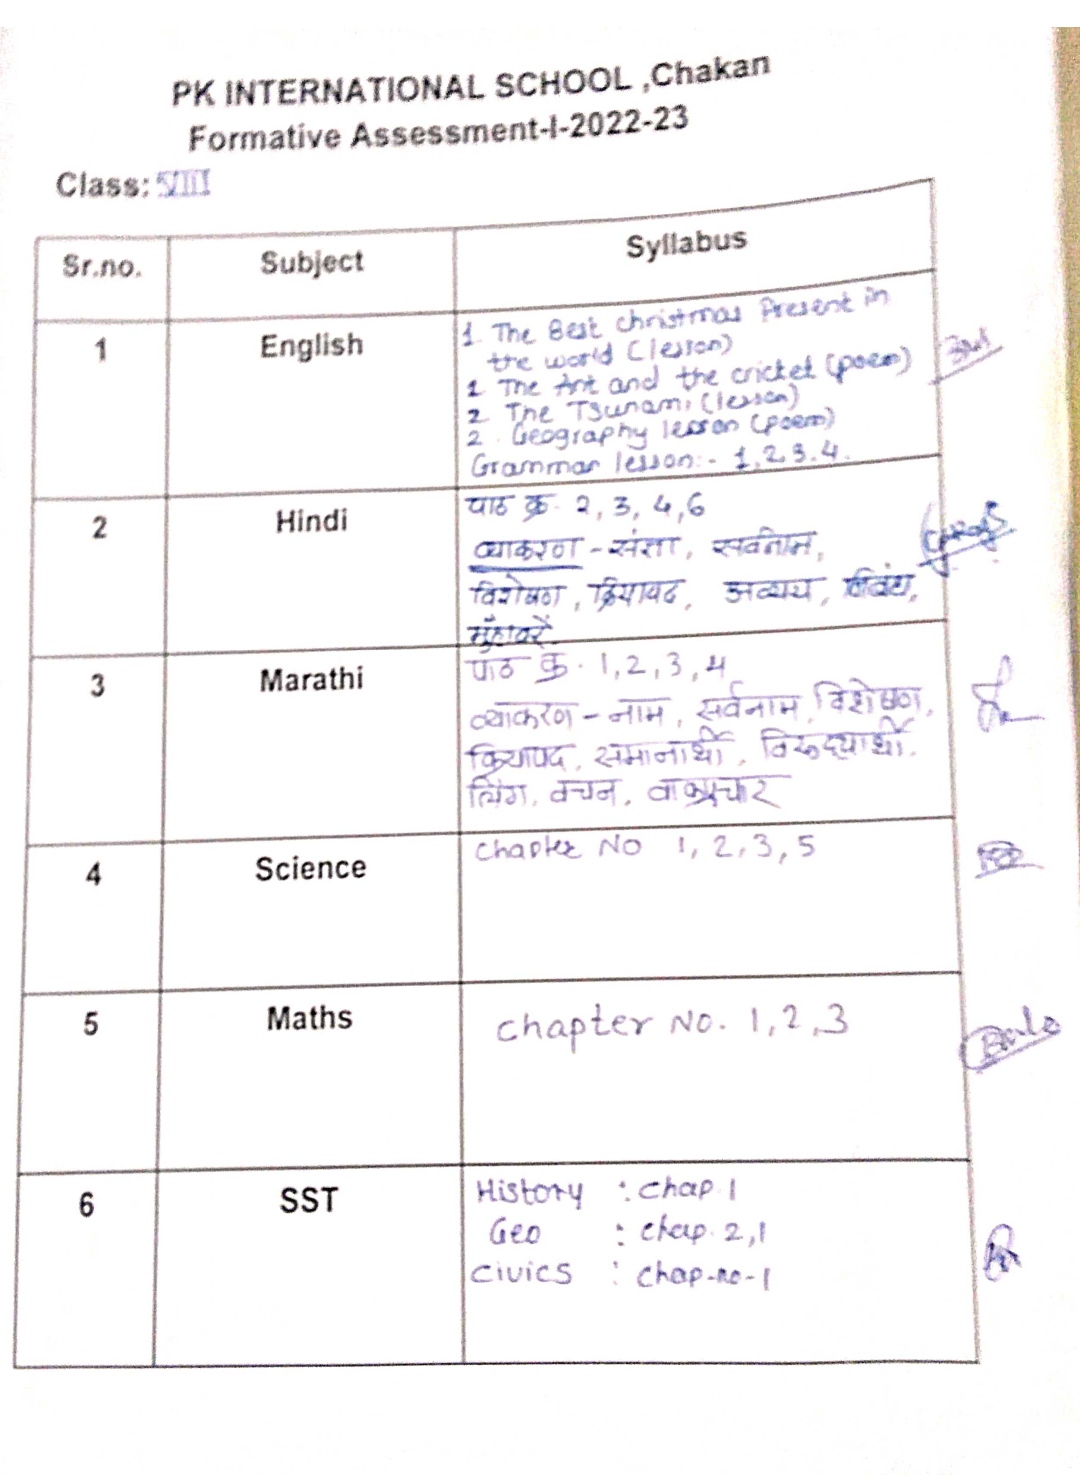 PK INTERNATIONAL SCHOOL ,Chakan
Formative Assessment-I-2022-23
Class: VIII
Sr.no. Subject Syllabus
1 English 1. The Best christmas Present in
the world (lesson)
1 The Ant and the cricket (poem)
2 The Tsunami (lesson)
2. Geography lesson (poem)
Grammar lesson:- 1,2.3.4.
2 Hindi पाठ क्र. २, 3, 4,6
व्याकरण - संज्ञा, सर्वनाम,
विशेषण, क्रियापद, अव्यय,
मुँहावरें.
3 Marathi पाठ क्र. 1,2,3,4
व्याकरण - नाम, सर्वनाम, विशेषण,
क्रियापद, समानार्थी, विरुद्धार्थी.
लिंग, वचन, वाक्प्रचार
4 Science chapter No 1, 2,3,5
5 Maths chapter No. 1,2,3
6 SST History : chap. 1
Geo : chap. 2,1
civics : chap-no-1